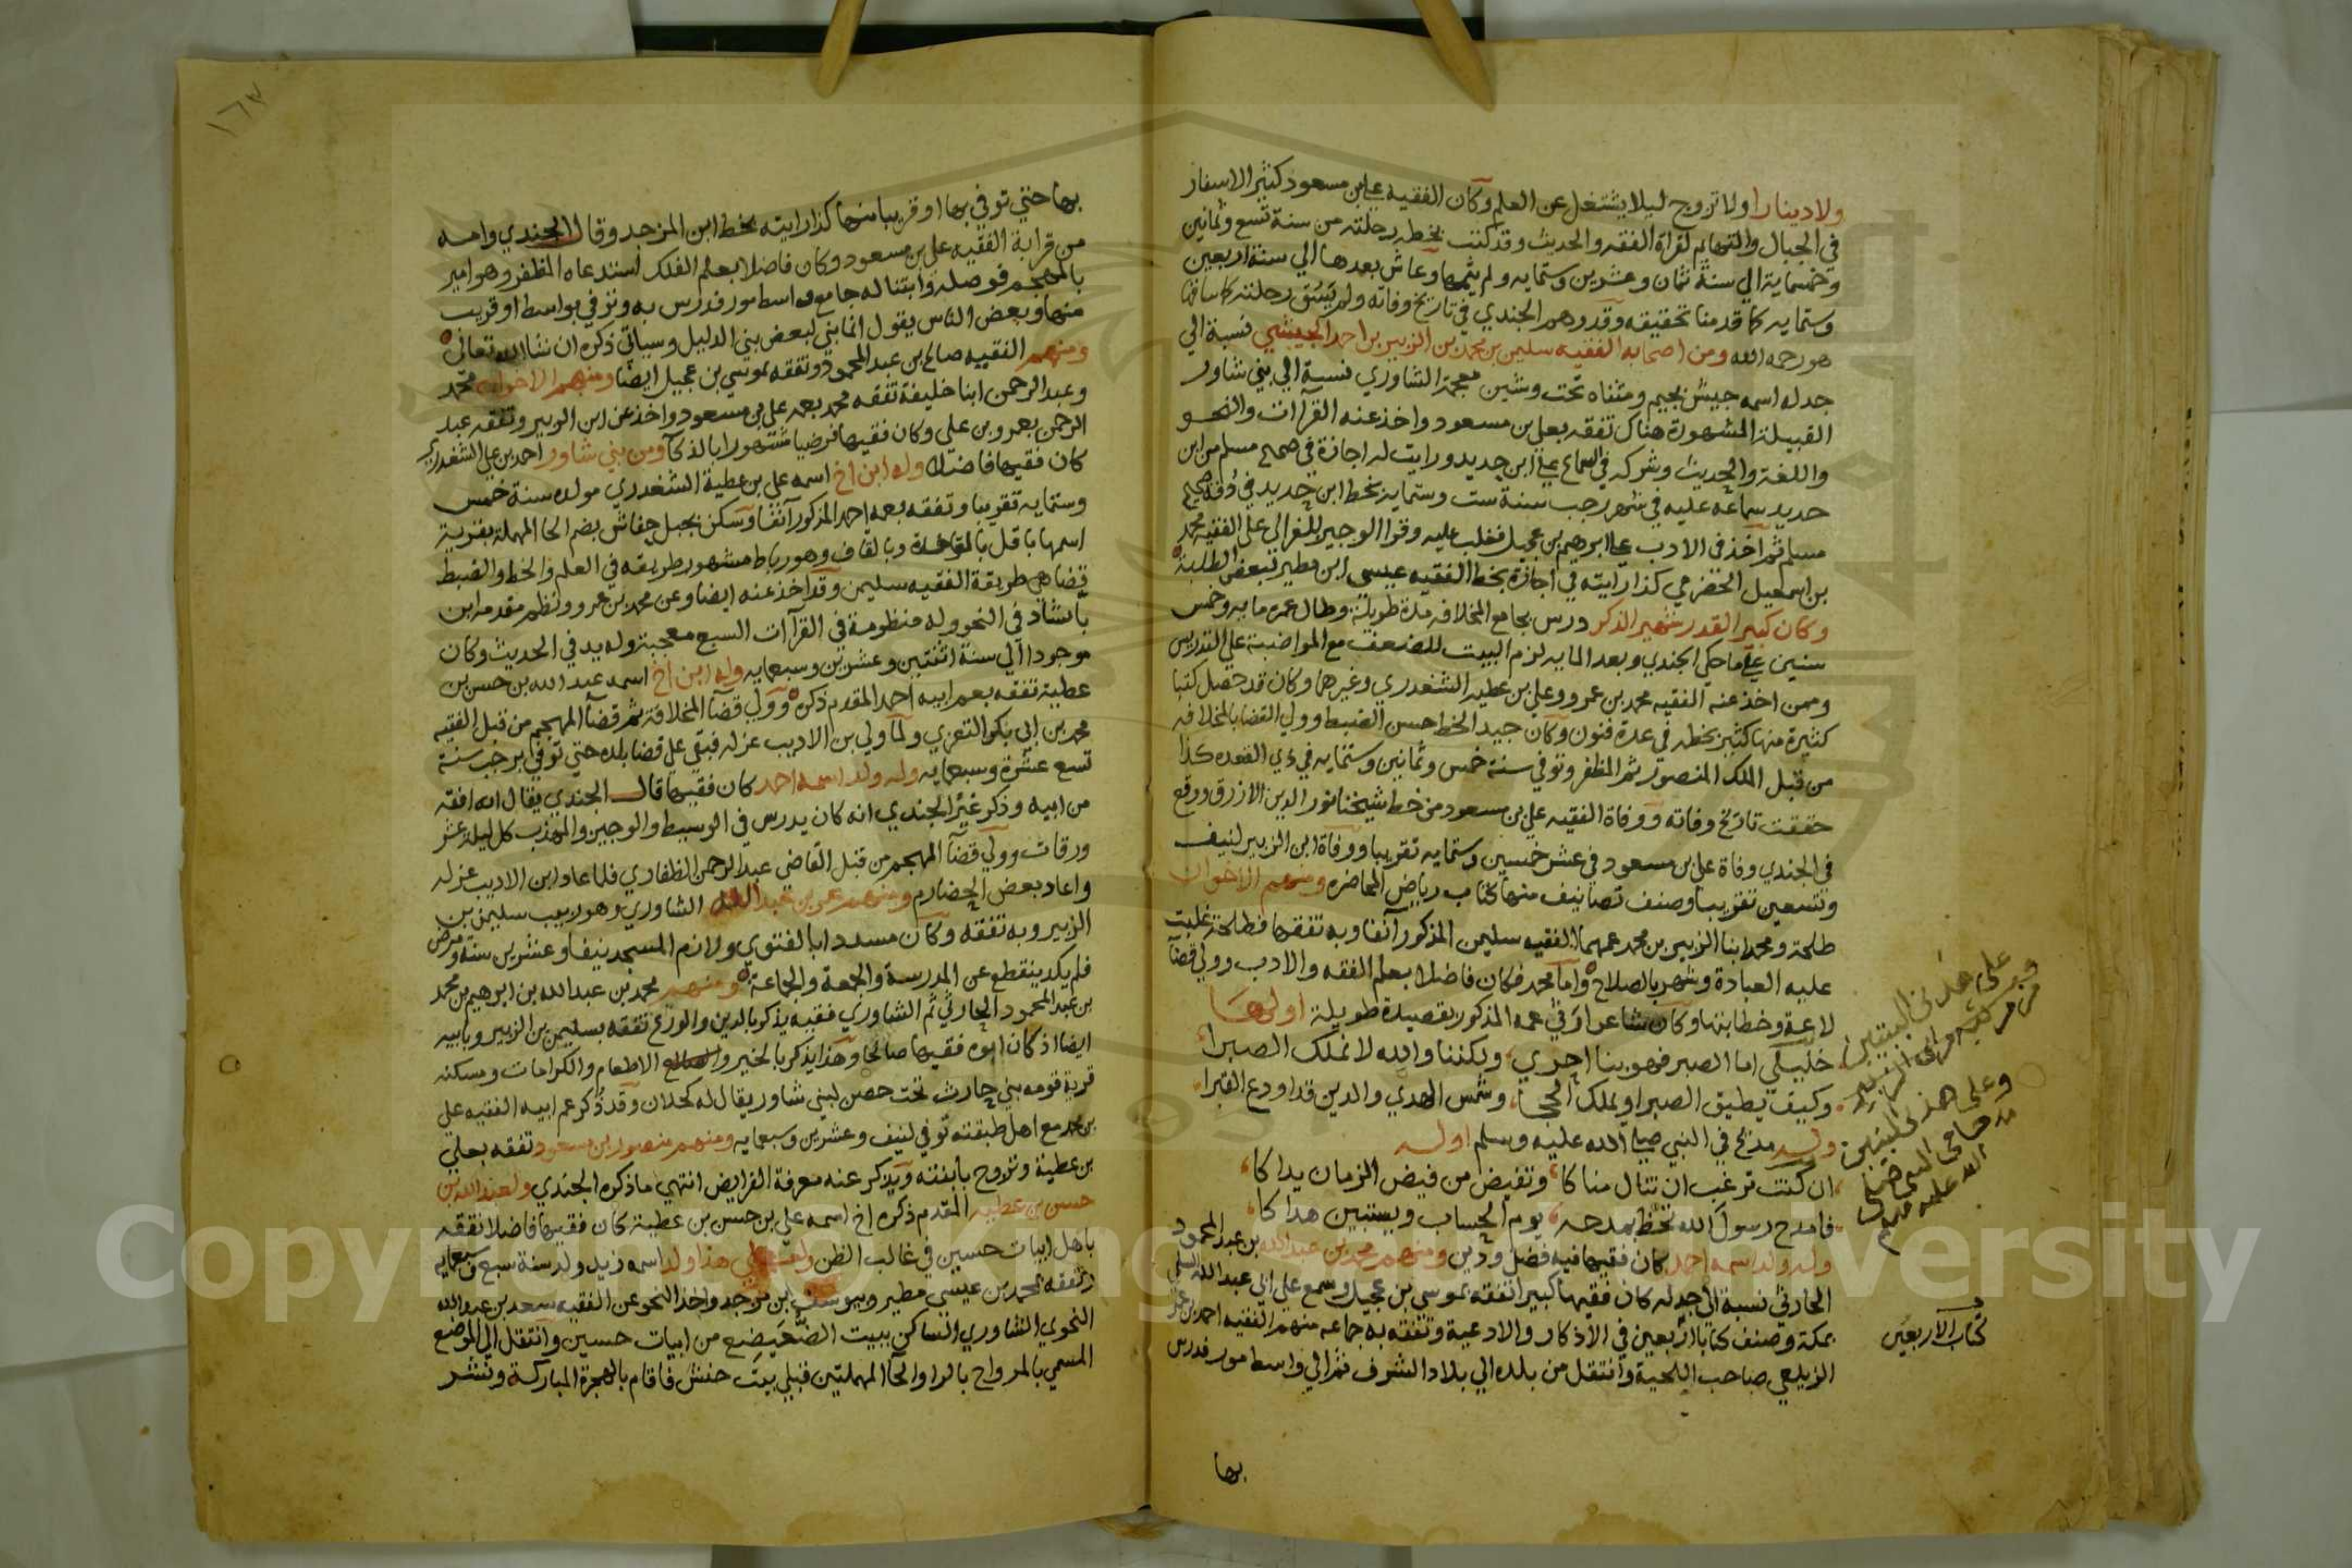 ولا دينارا ولا تزوج ليلا يشتغل عن العلم وكان الفقيه علي بن مسعود كثير الاسفار
في الجبال والتهايم لقراة الفقه والحديث وقد كتب بخطه رحلته من سنة تسع وثمانين
وخمسماية الي سنة ثمان وعشرين وستمايه ولم يتمها وعاش بعدها الي سنة اربعين
وستمايه كما قدمنا تحقيقه وقد وهم الجندي في تاريخ وفاته ولم رحلته كما ساقها
هو رحمه الله ومن اصحابه الفقيه سليمن بن محمد بن الزبير بن احمد الجيشي نسبة الي
جد له اسمه جيش بجيم ومثناه تحت وشين معجمة الشاوري نسبة الي بني شاور
القبيلة المشهورة هناك تفقه بعلي بن مسعود واخذ عنه القراات والنحو
واللغة والحديث وشركه في السماع علي ابن حديد ورايت له اجازة في صحيح مسلم من ابن
حديد سماعه عليه في شهر رجب سنة ست وستمايه بخط ابن حديد في
مسلم ثم اخذ في الادب علي ابرهيم بن عجيل فغلب عليه وقرا الوجيز للغزالي علي الفقيه محمد
بن اسمعيل الحضرمي كذا رايته في اجازة بخط الفقيه عيسي ابن مطير لبعض الطلبة
وكان كبير القدر شهير الذكر درس بجامع المخلافه مدة طويلة وطال عمره مايه وخمس
سنين علي ما حكي الجندي وبعد المايه لزم البيت للضعف مع المواضبة علي التدريس
وممن اخذ عنه الفقيه محمد بن عمرو وعلي بن عطيه الشغدري وغيرهما وكان قد حصل كتبا
كثيرة منها كثير بخطه في عدة فنون وكان جيد الخط حسن الضبط وولي القضا بالمخلافه
من قبل الملك المنصور ثم المظفر وتوفي سنة خمس وثمانين وستمايه في ذي القعده كذا
حققت تاريخ وفاته ووفاة الفقيه علي بن مسعود من خط شيخنا نور الدين الازرق ووقع
في الجندي وفاة علي بن مسعود في عشر خمسين وستمايه تقريبا ووفاة ابن الزبير لنيف
وتسعين تقريبا وصنف تصانيف منها كتاب رياض المحاضره ومنهم الاخوان
طلحة ومحمد ابنا الزبير بن محمد عمهما الفقيه سليمن المذكور آنفا وبه تفقها فطلحة غلبت
عليه العبادة وشهر بالصلاح واما محمد فكان فاضلا بعلم الفقه والادب وولي قضا
لاعة وخطابتها وكان شاعرا في عمه المذكور بقصيدة طويلة اولها
خليلي اما الصبر فهو بنا احري ولكننا والله لا نملك الصبرا
وكيف يطيق الصبر او يملك الحجا وشمس الهدي والدين قد اودع القبرا
وله مدح في النبي صلي الله عليه وسلم اوله
ان كنت ترغب ان تنال مناكا وتفيض من فيض الزمان يداكا
فامدح رسول الله تحظ بمدحه يوم الحساب ويستبين هداكا
وله ولد اسمه احمد كان فقيها فيه فضل ودين ومنهم محمد بن عبد الله بن عبد المحمود
الحارثي نسبة الي جد له كان فقيها كبيرا تفقه بموسي بن عجيل وسمع علي ابي عبد الله
بمكة وصنف كتابا اربعين في الاذكار والادعية وتفقه به جماعه منهم الفقيه احمد بن عمر
الزيلعي صاحب اللحية وانتقل من بلده الي بلاد الشرف ثم الي واسط مور فدرس
بها
كتاب الاربعين
١٦٧
بها حتي توفي بها او قريبا منها كذا رايته بخط ابن المزجد وقال الجندي وامه
من قرابة الفقيه علي بن مسعود وكان فاضلا بعلم الفلك استدعاه المظفر وهو امير
بالمهجم فوصله وابتنا له جامع واسط مور فدرس به وتوفي بواسط او قريب
منها وبعض الناس يقول انما بني لبعض بني الدليل وسياتي ذكره ان شا الله تعالي
ومنهم الفقيه صالح بن عبد المحمود وتفقه بموسي بن عجيل ايضا ومنهم الاخوان محمد
وعبد الرحمن ابنا خليفة تفقه محمد بعمه علي بن مسعود واخذ عن ابن الزبير وتفقه عبد
الرحمن بعمرو بن علي وكان فقيها فرضيا مشهورا بالذكا ومن بني شاور احمد بن علي الشغدري
كان فقيها فاضلا وله ابن اخ اسمه علي بن عطية الشغدري مولده سنة خمس
وستمايه تقريبا وتفقه بعمه احمد المذكور آنفا وسكن بجبل حفاش بضم الحا المهملة بقرية
اسمها باقل بالموحدة وبالقاف وهو رباط مشهور طريقه في العلم والخط والضبط
قضاهي طريقة الفقيه سليمن وقد اخذ عنه ايضا وعن محمد بن عمرو ونظم مقدمه ابن
بابشاد في النحو وله منظومة في القراآت السبع معجبة وله يد في الحديث وكان
موجودا الي سنة اثنتين وعشرين وسبعمايه وله ابن اخ اسمه عبد الله بن حسن بن
عطية تفقه بعم ابيه احمد المقدم ذكره وولي قضا المخلافة ثم قضا المهجم من قبل الفقيه
محمد بن ابي بكر التعزي ولما ولي بن الاديب عزله فبقي علي قضا بلده حتي توفي برجب سنة
تسع عشرة وسبعمايه وله ولد اسمه احمد كان فقيها قال الجندي يقال انه افقه
من ابيه وذكر غير الجندي انه كان يدرس في الوسيط والوجيز والمهذب كل ليلة عشر
ورقات وولي قضا المهجم من قبل القاضي عبد الرحمن الظفاري فلما عاد ابن الاديب عزله
واعاد بعض الحضارم ومنهم عمر بن عبد الله الشاوري وهو ربيب سليمن بن
الزبير وبه تفقه وكان مسددا بالفتوي ولازم المسجد نيفا وعشرين سنة ومرض
فلم يكد ينقطع عن المدرسة والجمعة والجماعة ومنهم محمد بن عبد الله بن ابرهيم بن محمد
بن عبد المحمود الحارثي ثم الشاوري فقيه يذكر بالدين والورع تفقه بسليمن بن الزبير وبابيه
ايضا اذ كان ابوه فقيها صالحا وهذا يذكر بالخير والاطعام والكرامات ومسكنه
قرية قومه بني حارث تحت حصن لبني شاور يقال له كحلان وقد ذكر عم ابيه الفقيه علي
بن محمد مع اهل طبقته توفي لنيف وعشرين وسبعمايه ومنهم منصور بن مسعود تفقه بعلي
بن عطية وتزوج بابنته ويذكر عنه معرفة الفرايض انتهي ما ذكره الجندي ولعبد الله بن
حسن بن عطيه المقدم ذكره اخ اسمه علي بن حسن بن عطية كان فقيها فاضلا تفقه
باهل ابيات حسين في غالب الظن هذا ولد اسمه زيد ولد سنة سبع وسبعمايه
وتفقه بمحمد بن عيسي مطير ويوسف ابن واخذ النحو عن الفقيه سعد بن عبد الله
النحوي الشاوري الساكن ببيت الضحيضع من ابيات حسين وانتقل الي الموضع
المسمي بالمرواح بالرا والحا المهملتين قبلي بيت حنش فاقام بالهجرة المباركة ونشر
Copyright © King Saud University